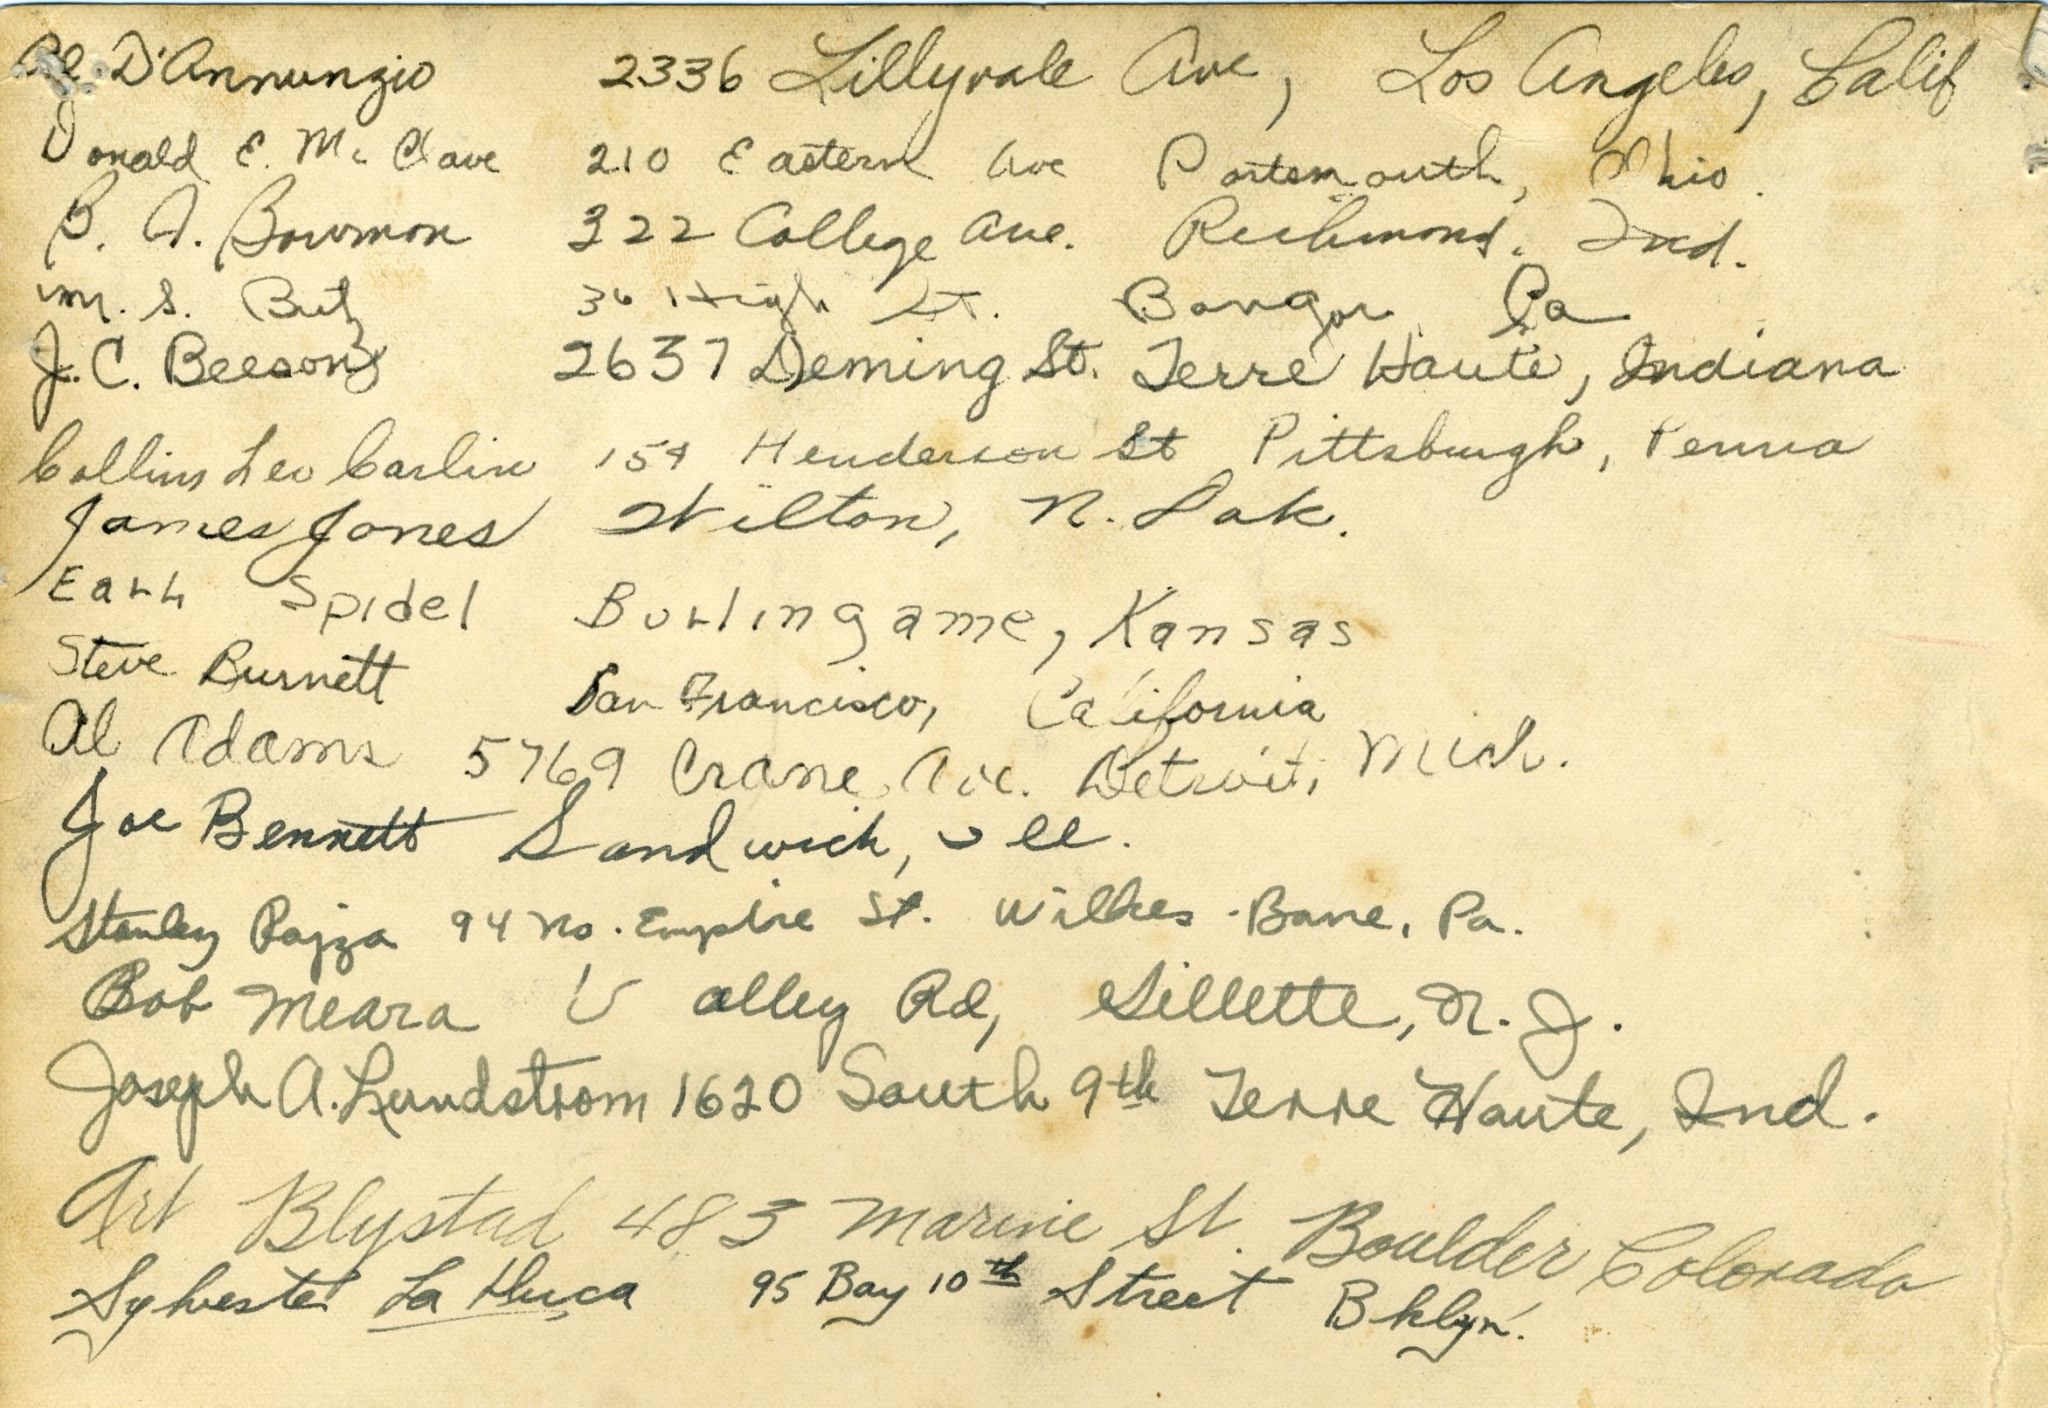 Al. D'Annunzio 2336 Lillyvale Ave, Los Angeles, Calif
Donald E. Mc Clave 210 Eastern Ave Portsmouth, Ohio.
B. A. Bowman 322 College Ave. Richmond. Ind.
M. S. Butz 36 High St. Bangor Pa
J. C. Beeson 2637 Deming St. Terre Haute, Indiana
Collins Leo Carlin 154 Henderson St Pittsburgh, Penna
James Jones Wilton, N. Dak.
Earl Spidel Burlingame, Kansas
Steve Burnett San Francisco, California
Al Adams 5769 Crane Ave. Detroit, Mich.
Joe Bennett Sandwich, Ill.
Stanley Pajza 94 No. Empire St. Wilkes-Barre, Pa.
Bob Meara Valley Rd, Gillette, N. J.
Joseph A. Lundstrom 1620 South 9th Terre Haute, Ind.
Art Blystad 483 Marine St. Boulder, Colorado
Sylvester La 95 Bay 10th Street Bklyn.